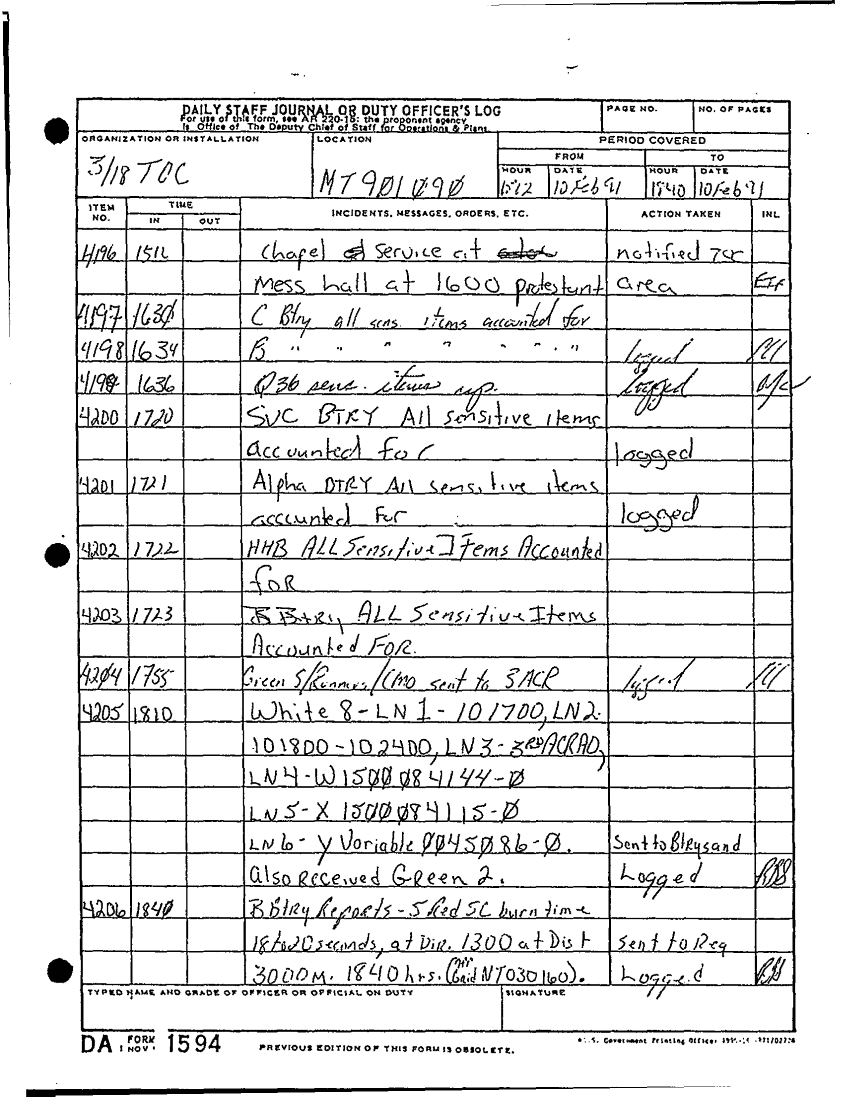 DAILY STAFF JOURNAL OR DUTY OFFICER'S LOG
For use of this form, see AR 220-15; the proponent agency
is Office of The Deputy Chief of Staff for Operations & Plans.
PAGE NO.
NO. OF PAGES
ORGANIZATION OR INSTALLATION
3/18 TOC
LOCATION
MT901090
PERIOD COVERED
FROM TO
HOUR DATE HOUR DATE
1512 10 Feb 91 1840 10 Feb 91
ITEM NO. TIME IN OUT INCIDENTS, MESSAGES, ORDERS, ETC. ACTION TAKEN INL
4196 1512 Chapel service at notified TOC
Mess hall at 1600 protestant area
4197 1630 C Btry all sens. items accounted for
4198 1634 B " " " " " " " logged
1636 Q36 sens. items up. logged
4200 1720 SVC BTRY All sensitive items
accounted for logged
4201 1721 Alpha BTRY All sensitive items
accounted for logged
4202 1722 HHB ALL Sensitive Items Accounted
foR
4203 1723 B Btry ALL Sensitive Items
Accounted FOR.
4204 1755 Green 5/Runners/Cmo sent to 3 ACR logged
4205 1810 White 8 - LN 1 - 101700, LN2-
101800-102400, LN3- 3RD ACRAO,
LN4-W1500084144-0
LN5-X1500084115-0
LN6- Y Variable 0045086-0. Sent to Btrys and
also received Green 2. Logged RBS
4206 1840 B Btry Reports - 5 Red SC burn time
18 to 20 seconds, at Dir. 1300 at Dist Sent to Reg
3000M. 1840 hrs. (Grid NT030160). Logged RBS
TYPED NAME AND GRADE OF OFFICER OR OFFICIAL ON DUTY
SIGNATURE
DA FORM 1 NOV 1594
PREVIOUS EDITION OF THIS FORM IS OBSOLETE.
U.S. Government Printing Office: